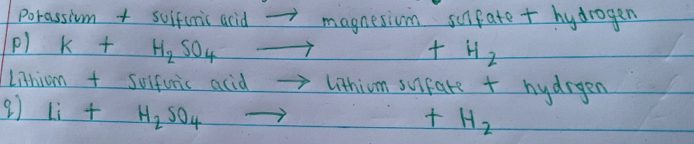 Potassium + sulfuric acid → magnesium sulfate + hydrogen
p) K + H₂SO₄ → + H₂
Lithium + Sulfuric acid → Lithium sulfate + hydrgen
q) Li + H₂SO₄ → + H₂